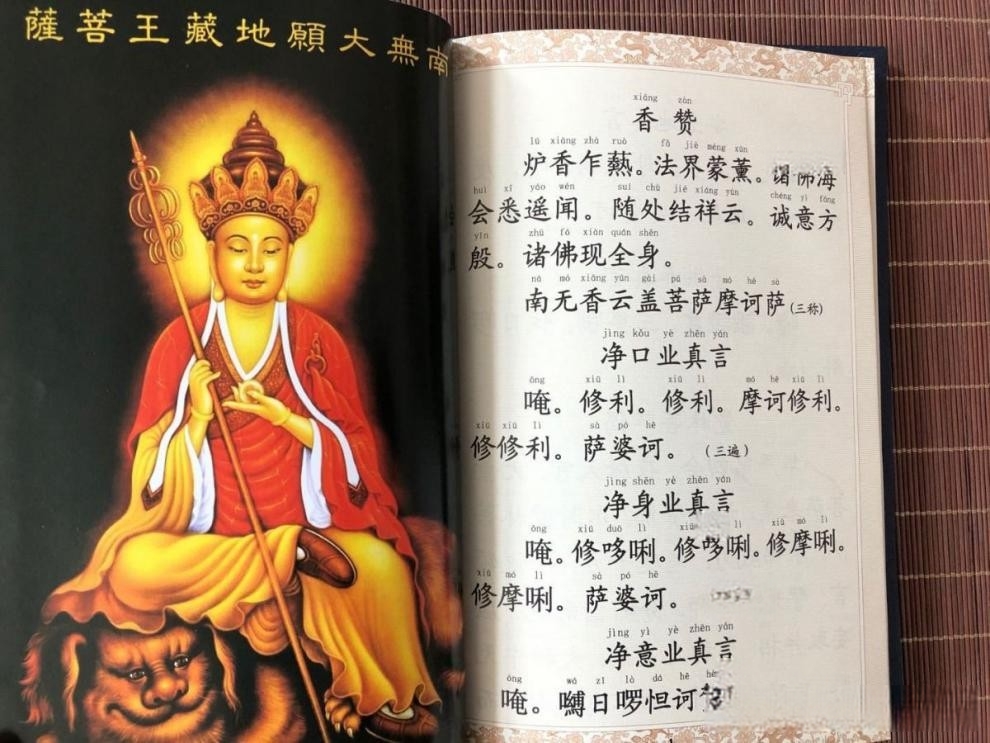 南無大願地藏王菩薩
xiāng zàn
香赞
lú xiāng zhà ruò fǎ jiè méng xūn
炉香乍爇。法界蒙薰。诸佛海
huì xī yáo wén suí chù jié xiáng yún chéng yì fāng
会悉遥闻。随处结祥云。诚意方
yīn zhū fó xiàn quán shēn
殷。诸佛现全身。
ná mó xiāng yún gài pú sà mó hē sà
南无香云盖菩萨摩诃萨(三称)
jìng kǒu yè zhēn yán
净口业真言
ōng xiū lì xiū lì mó hē xiū lì
唵。修利。修利。摩诃修利。
xiū xiū lì sà pó hē
修修利。萨婆诃。(三遍)
jìng shēn yè zhēn yán
净身业真言
ōng xiū duō lì xiū lì xiū mó lì
唵。修哆唎。修哆唎。修摩唎。
xiū mó lì sà pó hē
修摩唎。萨婆诃。
jìng yì yè zhēn yán
净意业真言
ōng wá zī là dá hē hè
唵。嚩日啰怛诃